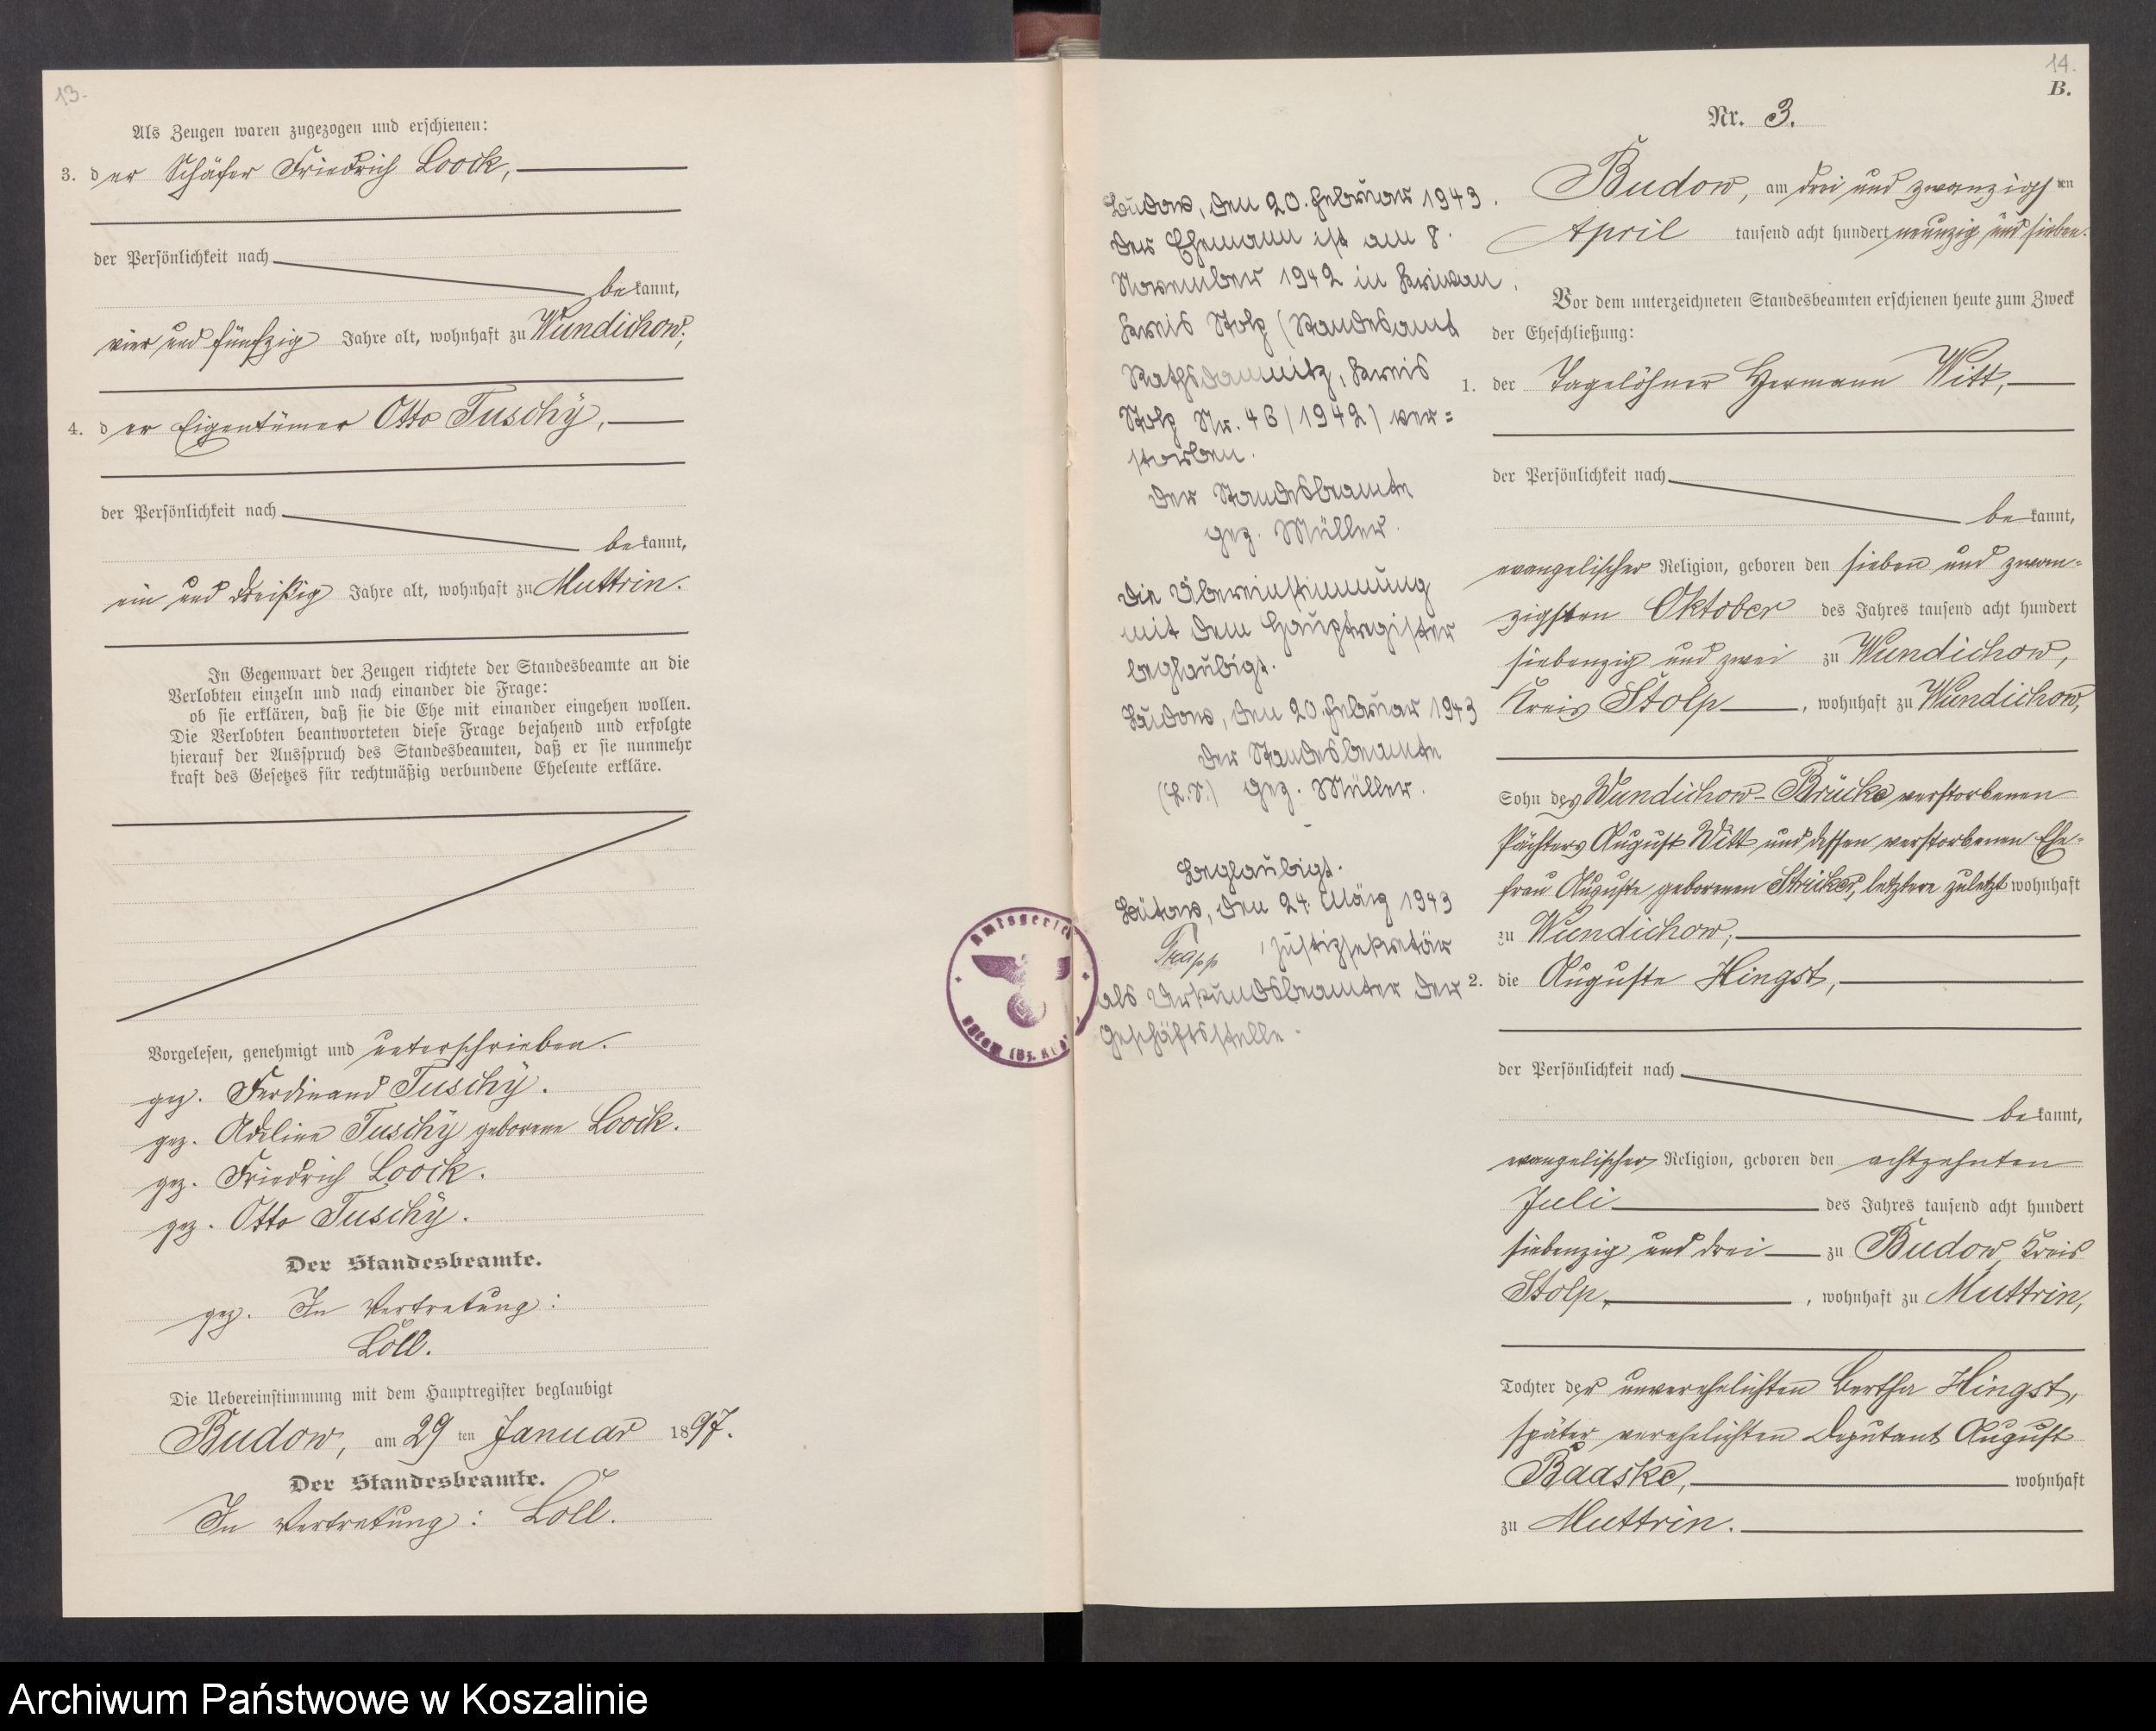 13.
Als Zeugen waren zugezogen und erschienen:
3. der Schäfer Friedrich Loock,
der Persönlichkeit nach
bekannt,
vier und fünfzig Jahre alt, wohnhaft zu Wundichow,
4. der Eigentümer Otto Tuschÿ,
der Persönlichkeit nach
bekannt,
ein und dreißig Jahre alt, wohnhaft zu Muttrin.
In Gegenwart der Zeugen richtete der Standesbeamte an die
Verlobten einzeln und nach einander die Frage:
ob sie erklären, daß sie die Ehe mit einander eingehen wollen.
Die Verlobten beantworteten diese Frage bejahend und erfolgte
hierauf der Ausspruch des Standesbeamten, daß er sie nunmehr
kraft des Gesetzes für rechtmäßig verbundene Eheleute erkläre.
Vorgelesen, genehmigt und unterschrieben.
gez. Ferdinand Tuschÿ.
gez. Adeline Tuschÿ geborene Loock.
gez. Friedrich Loock.
gez. Otto Tuschÿ.
Der Standesbeamte.
gez. In Vertretung:
Löll.
Die Uebereinstimmung mit dem Hauptregister beglaubigt
Budow, am 29 ten Januar 1897.
Der Standesbeamte.
In Vertretung: Löll.
Budow, den 20. Februar 1943.
Der Ehemann ist am 8.
November 1942 in Kriwan,
Kreis Stolp (Standesamt
Rathsdamnitz, Kreis
Stolp Nr. 46/1942) ver=
storben.
Der Standesbeamte
gez. Müller.
Die Übereinstimmung
mit dem Hauptregister
beglaubigt.
Budow, den 20. Februar 1943
Der Standesbeamte
(L.S.) gez. Müller.
Beglaubigt.
Bütow, den 24. März 1943
Trapp, Justizsekretär
als Urkundsbeamter der
Geschäftsstelle.
Amtsgericht
Bütow (Bz.
14.
B.
Nr. 3.
Budow, am drei und zwanzigsten
April tausend acht hundert neunzig und sieben.
Vor dem unterzeichneten Standesbeamten erschienen heute zum Zweck
der Eheschließung:
1. der Tagelöhner Hermann Witt,
der Persönlichkeit nach
bekannt,
evangelischer Religion, geboren den sieben und zwan=
zigsten Oktober des Jahres tausend acht hundert
siebenzig und zwei zu Wundichow,
Kreis Stolp, wohnhaft zu Wundichow,
Sohn des Wundichow-Brücke verstorbenen
Pächters August Witt und dessen verstorbenen Ehe=
frau Auguste geborenen Strücker, letztere zuletzt wohnhaft
zu Wundichow,
2. die Auguste Hingst,
der Persönlichkeit nach
bekannt,
evangelischer Religion, geboren den achtzehnten
Juli des Jahres tausend acht hundert
siebenzig und drei zu Budow, Kreis
Stolp, wohnhaft zu Muttrin,
Tochter der unverehelichten Bertha Hingst,
später verehelichten Deputant August
Baaske, wohnhaft
zu Muttrin.
Archiwum Państwowe w Koszalinie